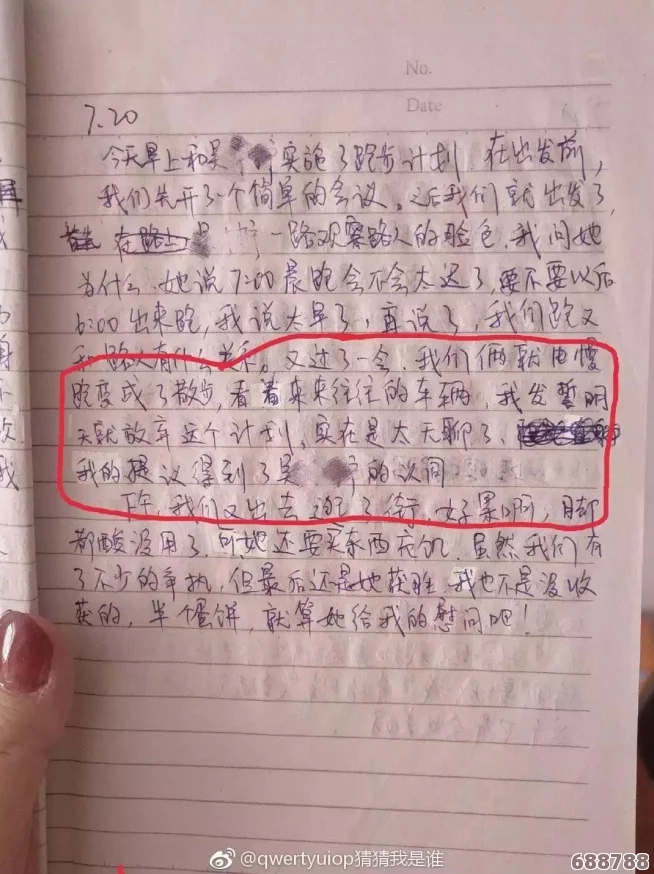 No.
Date
7.20
今天早上和吴 实施了跑步计划.在出发前,
我们先开了一个简单的会议.之后我们就出发了,
在路上 吴 一路观察路人的脸色.我问她
为什么.她说7:00晨跑会不会太迟了,要不要以后
6:00出来跑,我说太早了,再说了,我们跑又
和路人有什么关系。又过了一会.我们俩就由慢
跑变成了散步,看着来来往往的车辆,我发誓明
天就放弃这个计划,实在是太无聊了、
我的提议得到了吴 的认同
下午,我们又出去逛了街,好累啊,目却
都酸没用了.可她还要买东西充饥.虽然我们有
了不少的争执,但最后还是她获胜.我也不是没收
获的,半个蛋饼,就算她给我的慰问吧!
@qwertyuiop猜猜我是谁
688788